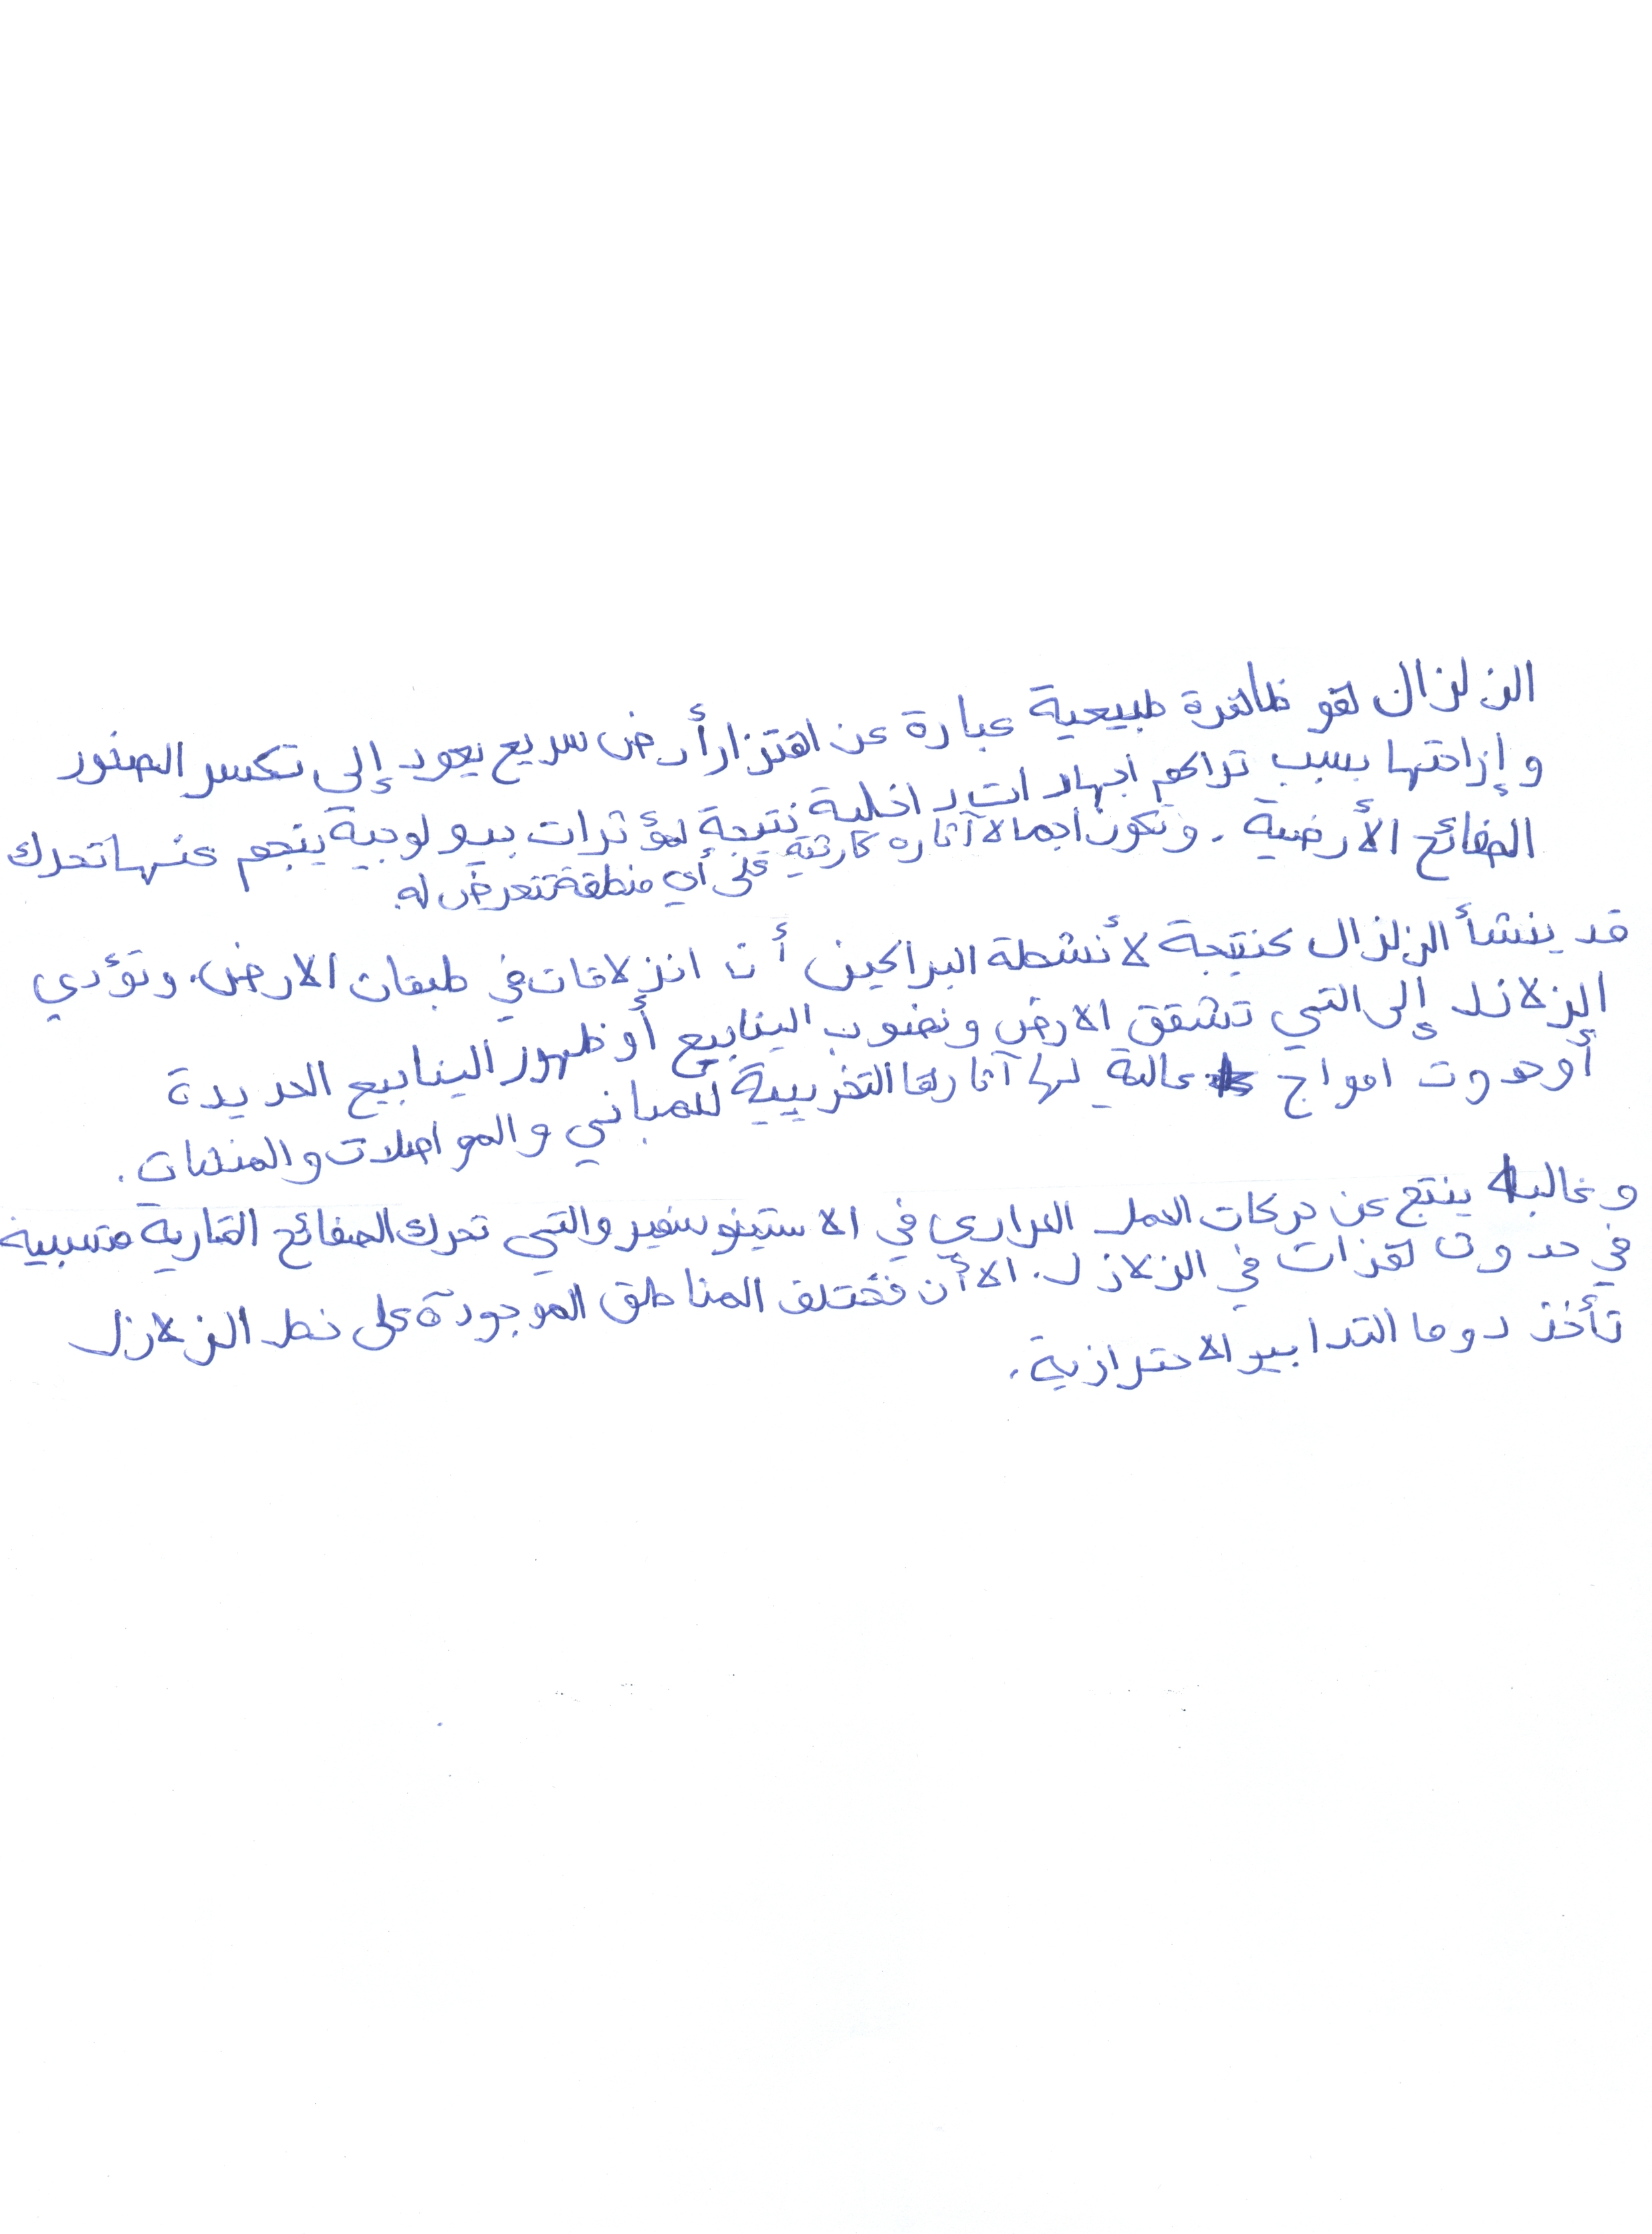 الزلزال هو ظاهرة طبيعية عبارة عن اهتزاز أرض سريع يعود إلى تكسر الصخور
وإزاحتها بسبب تراكم اجهادات داخلية نتيجة لمؤثرات جيولوجية ينجم عنها تحرك
الصفائح الأرضية. وتكون اجمالا آثاره كارثية على أي منطقة تتعرض له.
قد ينشأ الزلزال كنتيجة لأنشطة البراكين أن انزلاقات في طبقات الارض. وتؤدي
الزلازل إلى التي تشقق الارض ونضوب الينابيع أو ظهور الينابيع الجديدة
أو حدوث امواج عالية لها آثارها التخريبية للمباني والمواصلات والمنشات.
وغالبا ينتج عن حركات الحمل الحراري في الاستينوسفير والتي تحرك الصفائح القارية متسببة
في حدوث هزات في الزلازل. الا أن مختلف المناطق الموجودة على خط الزلازل
تأخذ دوما التدابير الاحترازية.